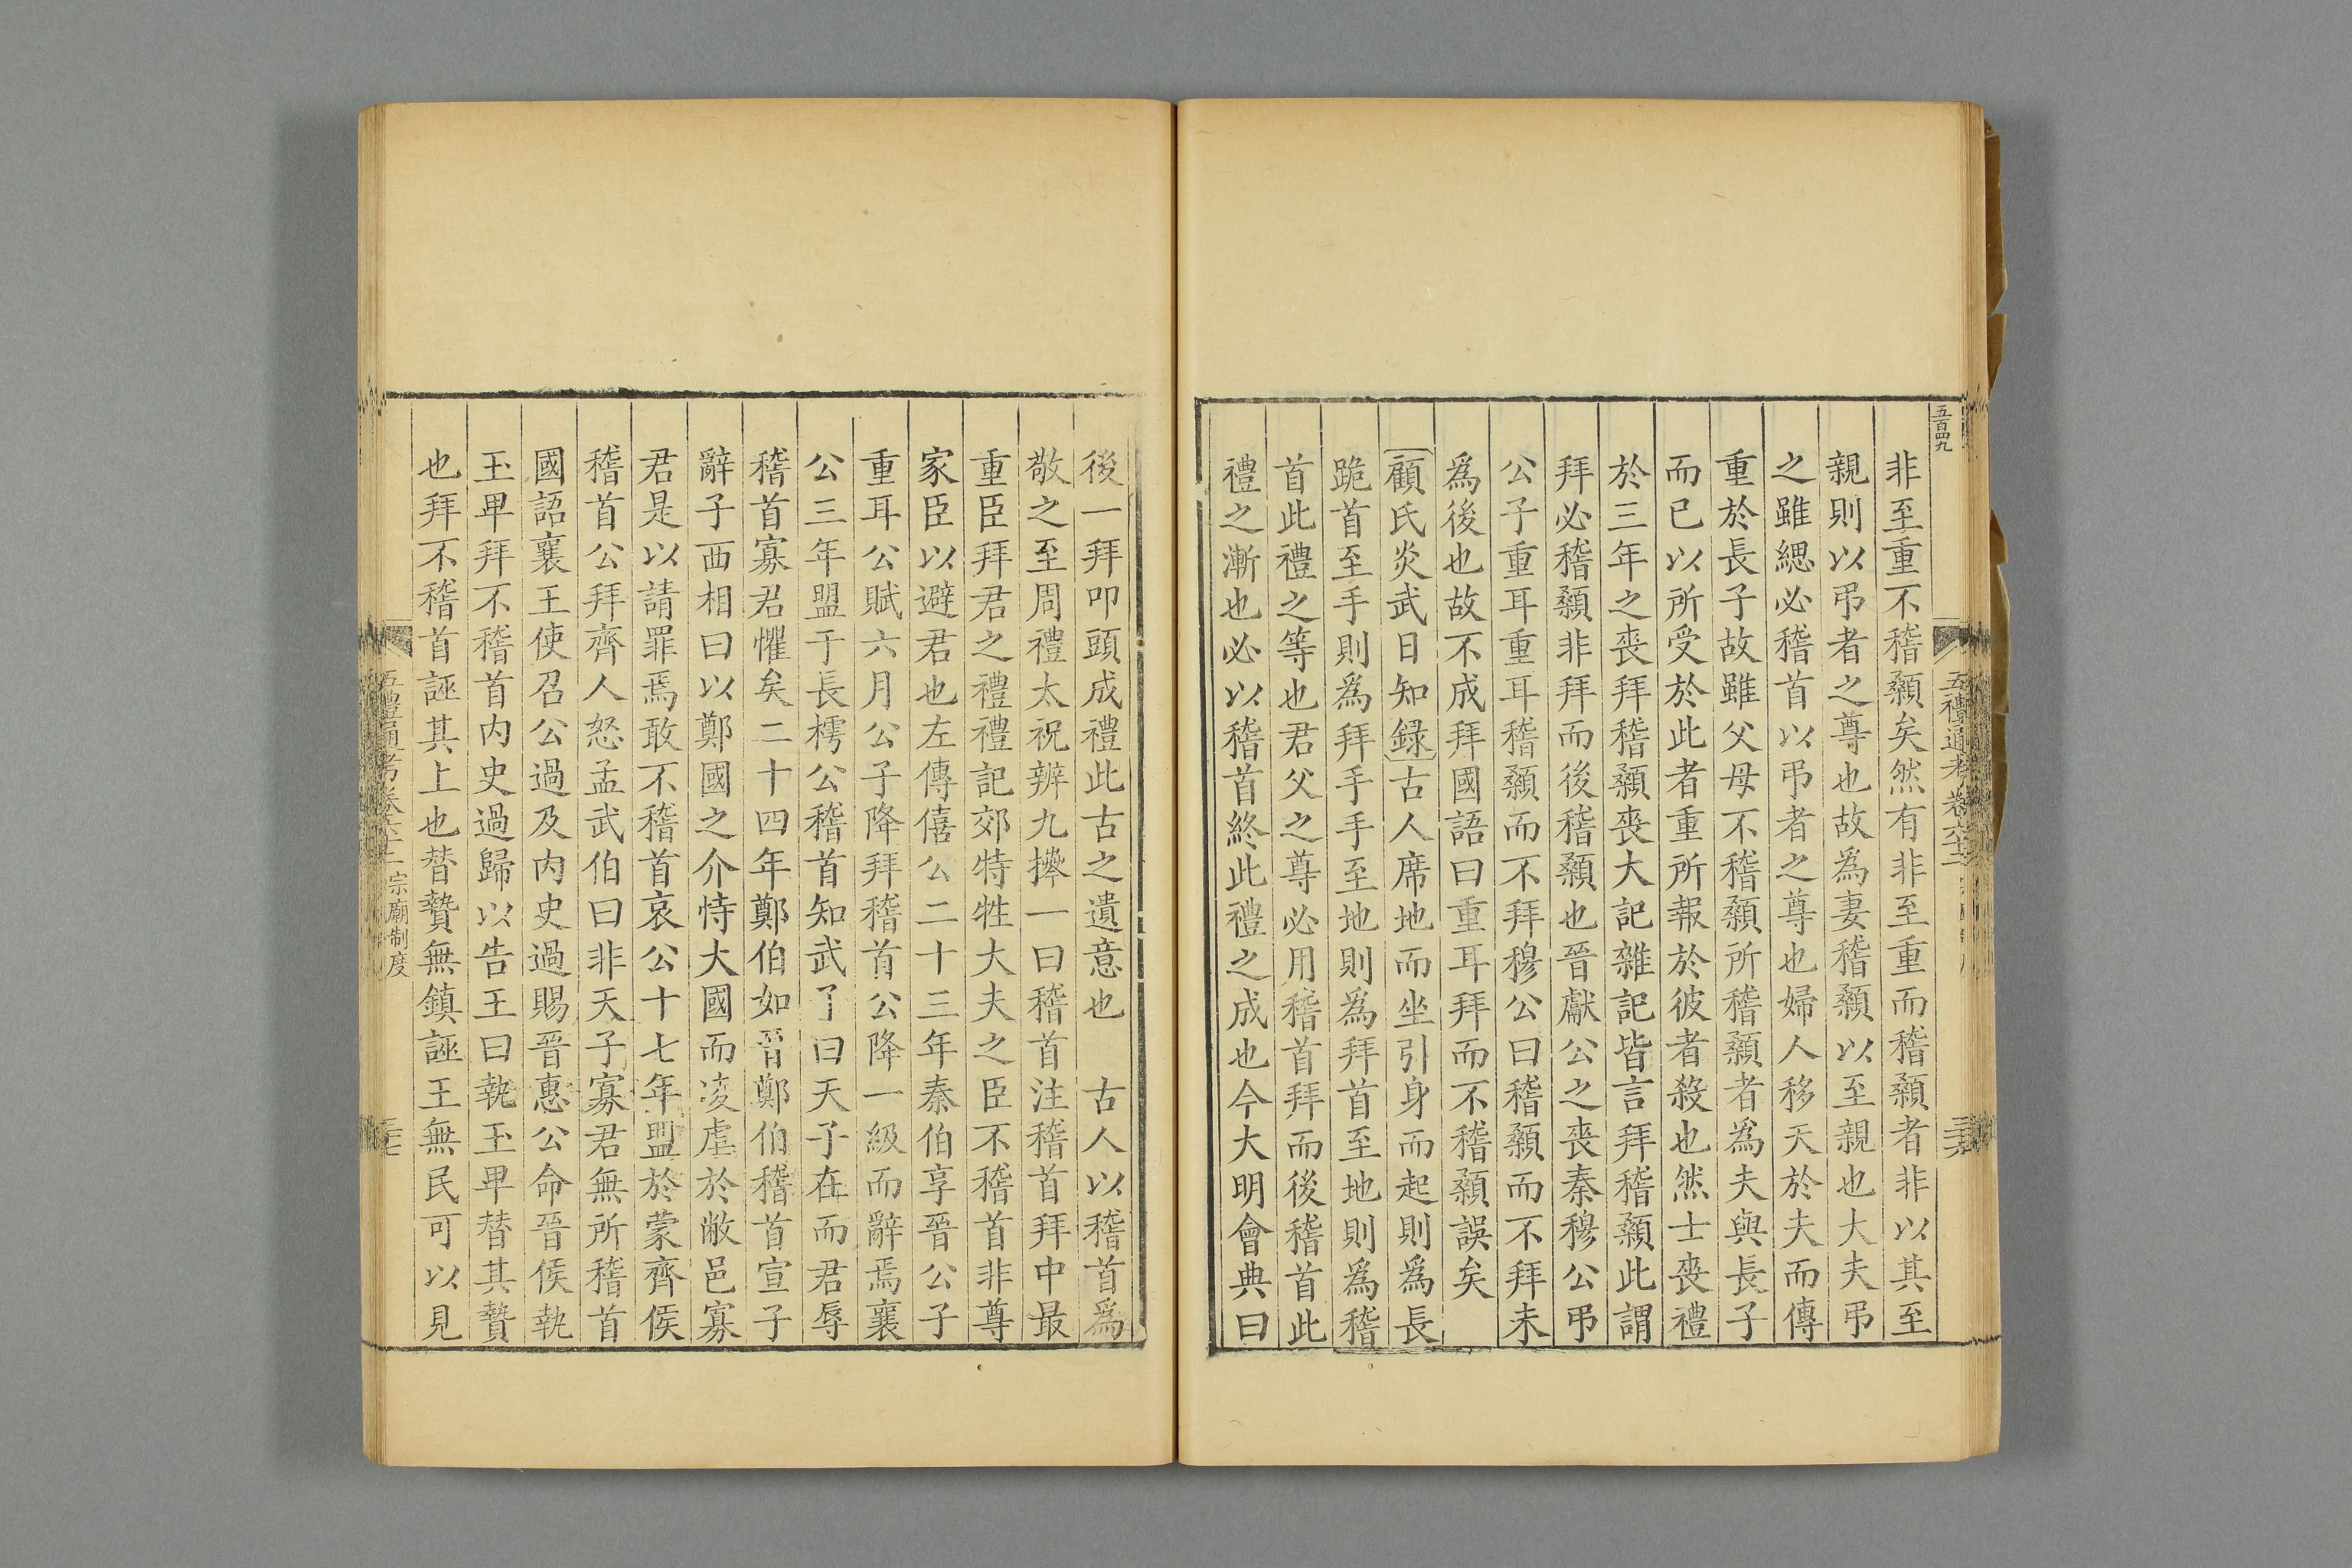 五百四九
五禮通考卷六十二
三十六
非至重不稽顙矣然有非至重而稽顙者非以其至
親則以弔者之尊也故為妻稽顙以至親也大夫弔
之雖緦必稽首以弔者之尊也婦人移天於夫而傳
重於長子故雖父母不稽顙所稽顙者為夫與長子
而已以所受於此者重所報於彼者殺也然士喪禮
於三年之喪拜稽顙喪大記雜記皆言拜稽顙此謂
拜必稽顙非拜而後稽顙也晉獻公之喪秦穆公弔
公子重耳重耳稽顙而不拜穆公曰稽顙而不拜未
為後也故不成拜國語曰重耳拜而不稽顙誤矣
顧氏炎武日知録古人席地而坐引身而起則為長
跪首至手則為拜手手至地則為拜首至地則為稽
首此禮之等也君父之尊必用稽首拜而後稽首此
禮之漸也必以稽首終此禮之成也今大明會典曰
後一拜叩頭成禮此古之遺意也　古人以稽首為
敬之至周禮太祝辨九𢷎一曰稽首注稽首拜中最
重臣拜君之禮禮記郊特牲大夫之臣不稽首非尊
家臣以避君也左傳僖公二十三年秦伯享晉公子
重耳公賦六月公子降拜稽首公降一級而辭焉襄
公三年盟于長樗公稽首知武了曰天子在而君辱
稽首寡君懼矣二十四年鄭伯如晉鄭伯稽首宣子
辭子西相曰以鄭國之介恃大國而凌虐於敝邑寡
君是以請罪焉敢不稽首哀公十七年盟於蒙齊侯
稽首公拜齊人怒孟武伯曰非天子寡君無所稽首
國語襄王使召公過及内史過賜晉惠公命晉侯執
玉卑拜不稽首内史過歸以告王曰執玉卑替其贄
也拜不稽首誣其上也替贄無鎮誣王無民可以見
五禮通考卷六十二 宗廟制度
三十七